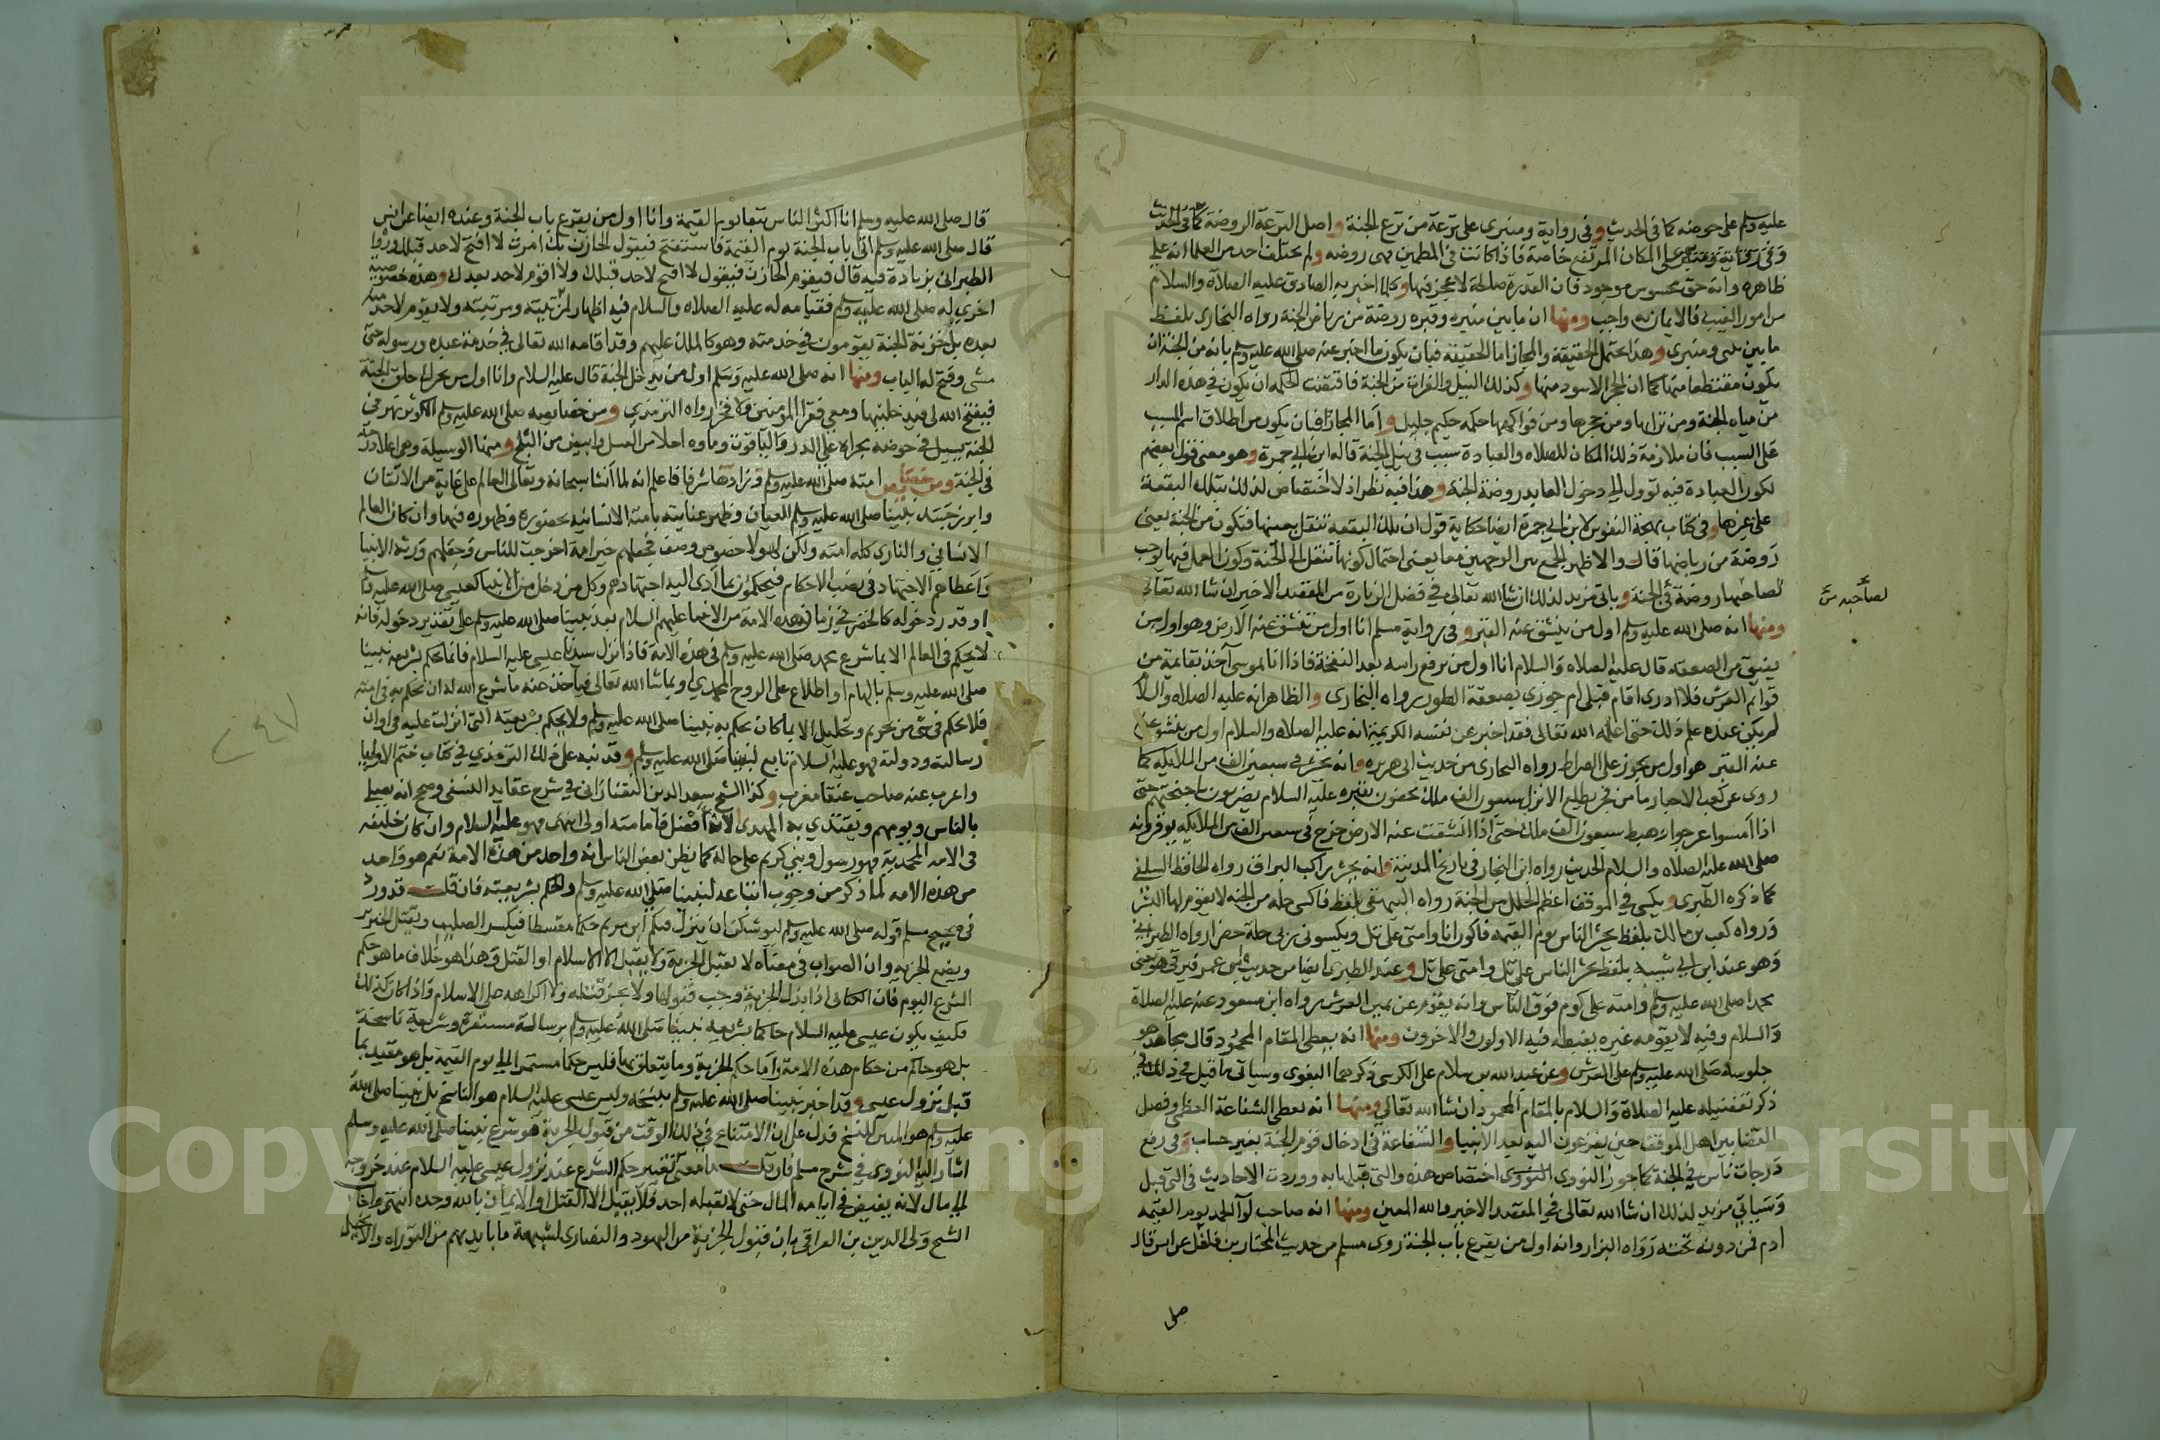 عليه وسلم على حوضه كما في الحديث وفي رواية ومنبري على ترعة من ترع الجنة واصل الترعة الروضة
على المكان المرتفع خاصة فاذا كانت في المطمين فهي روضه ولم يختلف احد من العلما انه على
ظاهره وانه حق محسوس موجود فان القدرة صالحة لا عجز فيها وكلما اخبر به الصادق عليه الصلاة والسلام
من امور الغيب فالايمان به واجب ومنها ان ما بين منبره وقبره روضة من رياض الجنة رواه البخاري بلفظ
ما بين بيتي ومنبري وهذا يحتمل الحقيقة والمجاز اما الحقيقة فبان يكون ما اخبر عنه صلى الله عليه وسلم بانه من الجنة ان
يكون مقتطعا منها كما ان الحجر الاسود منها وكذلك النيل والفرات من الجنة فاقتضت الحكمه ان يكون في هذه الدار
من مياه الجنة ومن ترابها ومن حجرها ومن فواكهها حكمه حكيم جليل واما المجاز فبان يكون من اطلاق اسم المسبب
على السبب فان ملازمة ذلك المكان للصلاه والعبادة سبب في نيل الجنة قاله ابن ابي جمرة وهو معنى قول بعضهم
لكون العبادة فيه تووول الى دخول العابد روضة الجنة وهذا فيه نظر اذ لا اختصاص لذلك بتلك البقعة
على غيرها وفي كتاب بهجة النفوس لابن ابي جمرة ايضا حكاية قول ان تلك البقعه تنقل بعينها فتكون من الجنة يعنى
روضة من رياضها قال والاظهر الجمع بين الوجهين معا يعنى احتمال كونها تنقل الى الجنة وكون العمل فيها يوجب
لصاحبها روضة في الجنة وياتي مزيد لذلك ان شا الله تعالى في فضل الزيارة من المقصد الاخير ان شا الله تعالى
لصاحبه
ومنها انه صلى الله عليه وسلم اول من ينشق عنه القبر وفي رواية مسلم انا اول من تنشق عنه الارض وهو اول من
يفيق من الصعقه قال عليه الصلاه والسلام انا اول من يرفع راسه بعد النفخة فاذا انا بموسى اخذ بقايمة من
قوايم العرش فلا ادري افاق قبلي ام جوزي بصعقة الطور رواه البخاري والظاهر انه عليه الصلاه والسلام
لم يكن عنده علم ذلك حتى اعلمه الله تعالى فقد اخبر عن نفسه الكريمة انه عليه الصلاه والسلام اول من ينشق
عنه القبر هو اول من يجوز على الصراط رواه البخاري من حديث ابي هريره وانه يحشر في سبعين الف من الملايكه كما
روى عن كعب الاحبار ما من فجر يطلع الا نزل سبعون الف ملك يحفون بقبره عليه السلام يضربون باجنحتهم حتى
اذا امسوا عرجوا وهبط سبعون الف ملك حتى اذا انشقت عنه الارض خرج في سبعين الف من الملايكه يوقرونه
صلى الله عليه الصلاه والسلام الحديث رواه ابن النجار في تاريخ المدينة وانه يحشر راكب البراق رواه الحافظ السلفي
كما ذكره الطبري ويكسى في الموقف اعظم الحلل من الجنة رواه البيهقي بلفظ فاكسى حلة من الجنه لا يقوم لها البشر
ورواه كعب بن مالك بلفظ يحشر الناس يوم القيمة فاكون انا وامتي على تل ويكسوني ربي حلة خضرا رواه الطبراني
وهو عند ابن ابي شيبه بلفظ يحشر الناس على تل وامتي على تل وعند الطبري ايضا من حديث ابن عمر فيرقى هو يعنى
محمدا صلى الله عليه وسلم وامته على كوم فوق الناس وانه يقوم عن يمين العرش رواه ابن مسعود عنه عليه الصلاة
والسلام وفيه لا يقومه غيره يغبطه فيه الاولون والاخرون ومنها انه يعطى المقام المحمود قال مجاهد هو
جلوسه صلى الله عليه وسلم على العرش وعن عبد الله بن سلام على الكرسي ذكرهما البغوى وسياتي ما قيل في ذلك في
ذكر تفضيله عليه الصلاة والسلام بالمقام المحمود ان شا الله تعالى ومنها انه يعطى الشفاعة العظمى وفصل
القضا بين اهل الموقف حين يفزعون اليه بعد الانبيا والشفاعة في ادخال قوم الجنة بغير حساب وفي رفع
درجات ناس في الجنة كما جوز النووي النووي اختصاص هذه والتي قبلها به ووردت الاحاديث في التي قبل
وسياتي مزيد لذلك ان شا الله تعالى في المقصد الاخير والله المعين ومنها انه صاحب لوآ الحمد يوم القيمه
ادم فمن دونه تحته رواه البزار وانه اول من يقرع باب الجنة روى مسلم من حديث المختار بن فلفل عن انس قال
صلى
قال صلى الله عليه وسلم انا اكثر الناس تبعا يوم القيمة وانا اول من يقرع باب الجنة وعنده ايضا عن انس
قال صلى الله عليه وسلم اتي باب الجنة يوم القيمة فاستفتح فيقول الخازن بك امرت لا افتح لاحد قبلك ورواه
الطبراني بزيادة فيه قال فيقوم الخازن فيقول لا افتح لاحد قبلك ولا اقوم لاحد بعدك وهذه خصوصية
اخرى له صلى الله عليه وسلم فقيامه له عليه الصلاه والسلام فيه اظهار لمزيته ومرتبته ولا يقوم لاحد
بعده بل خزنة الجنة يقومون في خدمته وهو كالملك عليهم وقد اقامه الله تعالى في خدمة عبده ورسوله حتى
مشى وفتح له الباب ومنها انه صلى الله عليه وسلم اول من يدخل الجنة قال عليه السلام وانا اول من يحرك حلق الجنة
فيفتح الله لي فيدخلنيها ومعي فقرا المومنين ولا فخر رواه الترمذي ومن خصايصه صلى الله عليه وسلم الكوثر نهر في
الجنة يسيل في حوضه مجراه على الدر والياقوت وماوه احلا من العسل وابيض من الثلج ومنها الوسيلة وهي اعلا درجة
في الجنة ومن خصايص امته صلى الله عليه وسلم وزادها شرفا فاعلم انه لما انشا سبحانه وتعالى العالم على غاية من الاتقان
وابرز جسد نبينا صلى الله عليه وسلم للعيان وظهر عنايته بامته الانسانية بحضوره وظهوره فيها وان كان العالم
الانساني والناري كله امته ولكن لهولا خصوص وصف فجعلهم خير امة اخرجت للناس وجعلهم ورثة الانبيا
واعطاهم الاجتهاد في نصب الاحكام فيحكمون بما ادى اليه اجتهادهم وكل من دخل من الانبيا كعيسى صلى الله عليه وسلم
او قدر دخوله كالخضر في زمان هذه الامة من الانبيا عليهم السلام بعد نبينا صلى الله عليه وسلم على تقدير دخوله فانه
لا يحكم في العالم الا بما شرع محمد صلى الله عليه وسلم في هذه الامة فاذا نزل سيدنا عيسى عليه السلام فانما يحكم بشريعه نبينا
صلى الله عليه وسلم بالهام او اطلاع على الروح المحمدي او بما شا الله تعالى فياخذ عنه ما شرع الله له ان يحكم به في امته
فلا يحكم في شي من تحريم وتحليل الا بما كان يحكم به نبينا صلى الله عليه وسلم ولا يحكم بشريعته التي انزلت عليه في اوان
رسالته ودولته فهو عليه السلام تابع لنبينا صلى الله عليه وسلم وقد نبه على ذلك الترمذي في كتاب ختم الاوليا
واعرب عنه صاحب عنقا مغرب وكذا الشيخ سعد الدين التفتازاني في شرح عقايد النسفى وصحح انه يصلي
بالناس ويومهم ويقتدي به المهدي لانه افضل فامامته اولى انتهى فهو عليه السلام وان كان خليفه
في الامه المحمدية فهو رسول ونبي كريم على حاله كما يظن بعض الناس انه واحد من هذه الامة نعم هو واحد
من هذه الامه لما ذكر من وجوب اتباعه لنبينا صلى الله عليه وسلم والحكم بشريعته فان قلت قد ورد
في صحيح مسلم قوله صلى الله عليه وسلم ليوشكن ان ينزل فيكم ابن مريم حكما مقسطا فيكسر الصليب ويقتل الخنزير
ويضع الجزيه وان الصواب في معناه لا يقبل الجزية ولا يقبل الا الاسلام او القتل وهذا هو خلاف ما هو حكم
الشرع اليوم فان الكتابي اذا بذل الجزية وجب قبولها ولا يجز قتله ولا اكراهه على الاسلام واذا كان كذلك
فكيف يكون عيسى عليه السلام حاكما بشريعه نبينا صلى الله عليه وسلم برسالة مستقرة وشريعة ناسخة
بل هو حاكم من حكام هذه الامة واما حكم الجزية وما يتعلق بها فليس حكما مستمرا الى يوم القيمة بل هو مقيد بما
قبل نزول عيسى وقد اخبر نبينا صلى الله عليه وسلم بنسخه وليس عيسى عليه السلام هو الناسخ بل نبينا صلى الله
عليه وسلم هو المبين للنسخ فدل على ان الامتناع في ذلك الوقت من قبول الجزية هو شرع نبينا صلى الله عليه وسلم
اشار اليه النووي في شرح مسلم فان قلت ما معنى تغيير حكم الشرع عند نزول عيسى عليه السلام عند خروجه
الى مال لانه يفيض في ايامه المال حتى لا يقبله احد فلا يقبل الا القتل او الايمان بالله وحده انتهى واجاب
الشيخ ولى الدين بن العراقي بان قبول الجزية من اليهود والنصارى لشبهة ما بايديهم من التوراه والانجيل
٢٤٧
Copyright © King Saud University